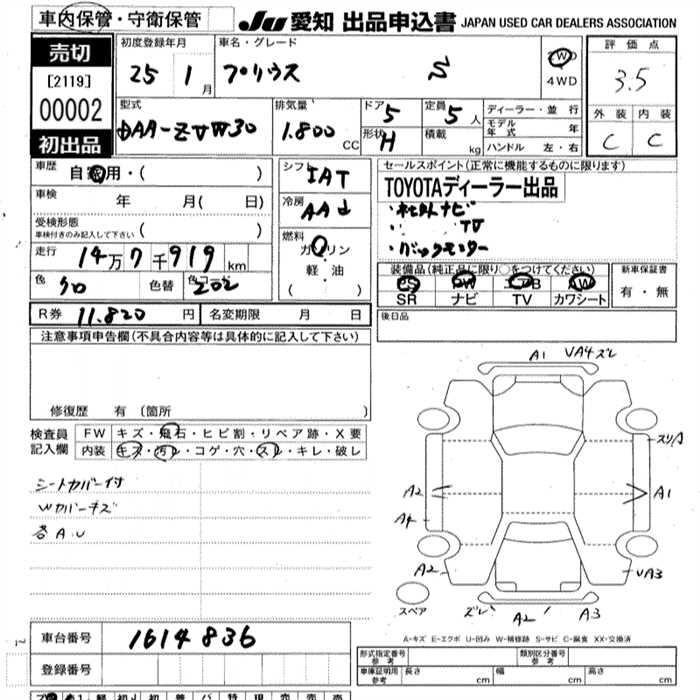 車内保管・守衛保管 JU 愛知 出品申込書 JAPAN USED CAR DEALERS ASSOCIATION
売切 [2119] 00002 初出品
初度登録年月 25 1月
車名・グレード プリウス S
2WD 4WD
評価点 3.5
外装 内装
C C
型式 DAA-ZVW30
排気量 1.800 CC
ドア 5
定員 5人
形状 H
積載 kg
ディーラー・並行
モデル年式 年
ハンドル 左・右
車歴 自家用・( )
車検 年 月( 日)
受検形態 車検付きのみ記入して下さい ( )
走行 14万7千919km
色 クロ 色替 色No. 202
シフト IAT
冷房 AAC
燃料 ガソリン 軽油 ( )
セールスポイント(正常に機能するものに限ります)
TOYOTAディーラー出品
・社外ナビ
・ TV
・バックモニター
装備品(純正品に限り○をつけてください)
PS PW エアB AW
SR ナビ TV カワシート
新車保証書 有・無
後日品
R券 11.820円 名変期限 月 日
注意事項申告欄(不具合内容等は具体的に記入して下さい)
修復歴 有 (箇所 )
検査員記入欄
FW キズ・飛石・ヒビ割・リペア跡・X要
内装 キズ・汚レ・コゲ・穴・スレ・キレ・破レ
シートカバー付
Wカバーキズ
各A.U
A1 VA4ズレ
スリA
A2
A1
A4
A2
VA3
スペア
ズレ A2 A3
A-キズ E-エクボ U-凹み W-補修跡 S-サビ C-腐食 XX-交換済
車台番号 1614836
登録番号
形式指定番号 参考
類別区分番号 参考
車庫証明用 参考 長さ cm 幅 cm 高さ cm